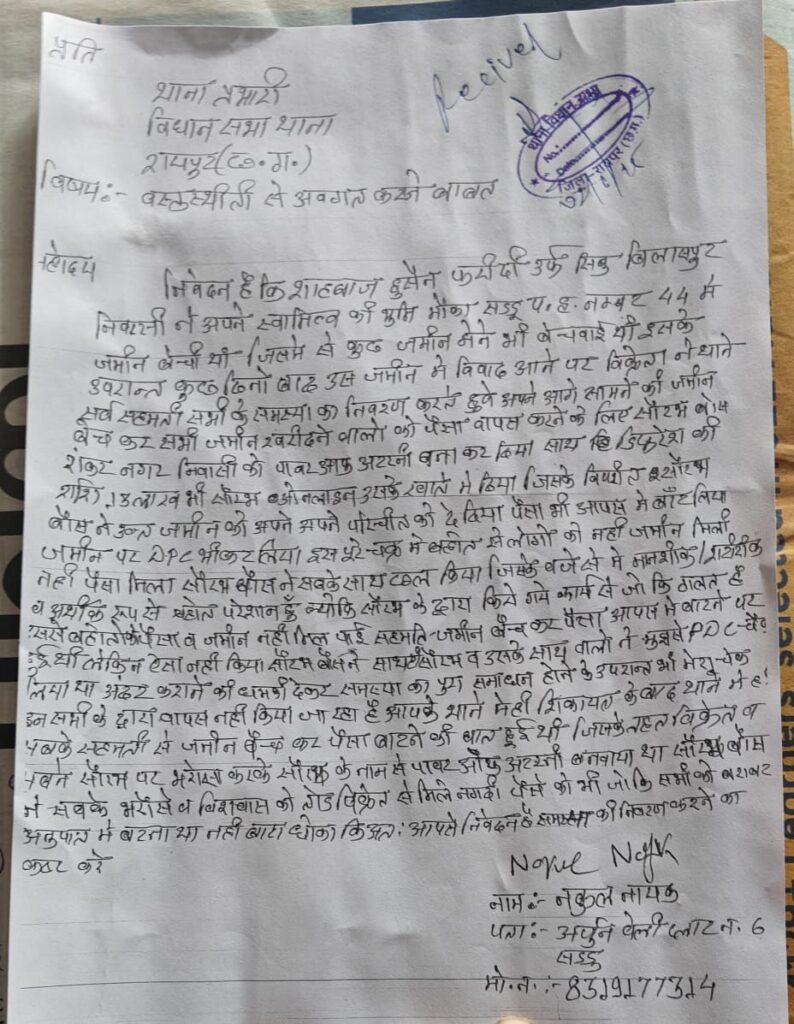 प्रति
थाना प्रभारी
विधान सभा थाना
रायपुर (छ.ग.)
Recived
थाना-विधान सभा
No.
Date
जिला-रायपुर (छ.ग.)
विषय:- वस्तुस्थीती से अवगत करने बाबत
महोदय
निवेदन है कि शाहबाज हुसैन फरीदी उर्फ सिबु बिलासपुर
निवासी ने अपने स्वामित्व की भुमि मौका सड्डू प.ह. नम्बर 44 मे
जमीन बेची थी जिसमे से कुछ जमीन मेने भी बेचवाई थी इसके
उपरान्त कुछ दिनो बाद उस जमीन मे विवाद आने पर विक्रेता ने थाने
सर्व सहमती सभी के समस्या का निवरण करते हुवे अपने आगे सामने की जमीन
बेच कर सभी जमीन खरीदने वालो को पैसा वापस करने के लिए सौरभ बोस
शंकर नगर निवासी को पावर आफ अटरनी बना कर दिया साथ हि डिफरेंश की
राशि 13 लाख भी सौरभ ओनलाइन उसके खाते मे दिया जिसके विपरीत सौरभ
बौस ने उक्त जमीन को अपने अपने परिचीत को दे दिया पैसा भी आपस मे बाँट लिया
जमीन पर DPC भी कर लिया इस पुरे चक्र मे बहोत से लोगो को नही जमीन मिली
नही पैसा मिला सौरभ बौस ने सबके साथ छल किया जिसके वजे से मे मानशीक/शारीरीक
व आर्थीक रूप से बहोत परेशान हुँ क्योकि सौरभ के द्वारा किये गये कार्य से जो कि गलत है
पैसा व जमीन नही मिल पाई सहमति जमीन बैच कर पैसा आपस मे बाटने पर
हुई थी लेकिन ऐसा नही किया सौरभ बौस ने साथ सौरभ व उसके साथ वालो ने मुझसे PDC चैक
लिया था अंदर कराने की धमकी देकर समस्या का पुरा समाधान होने के उपरान्त भी मेरा चेक
इन सभी के द्वारा वापस नही किया जा रहा है आपके थाने मेही शिकायत के बाद थाने मे ही
सबके सहमती से जमीन बैच कर पैसा बाटने की बात हुई थी जिसके तहत विक्रेता व
सबने सौरभ पर भरोसा करके सौरभ के नाम से पावर ऑफ अटरनी बनवाया था सौरभ बौस
ने सबके भरोसे व विशवास को तोड विक्रेता से मिले नगदी पैसे को भी जो कि सभी को बराबर
अनुपात मे बटना था नही बाटा धोका किया अत: आपसे निवेदन है समस्या की निवरण करने का
कष्ट करे
नाम:- नकुल नायक
पता:- अर्जुन वेली प्लाट न. 6
सड्डु
मो.न. :- 8319177314